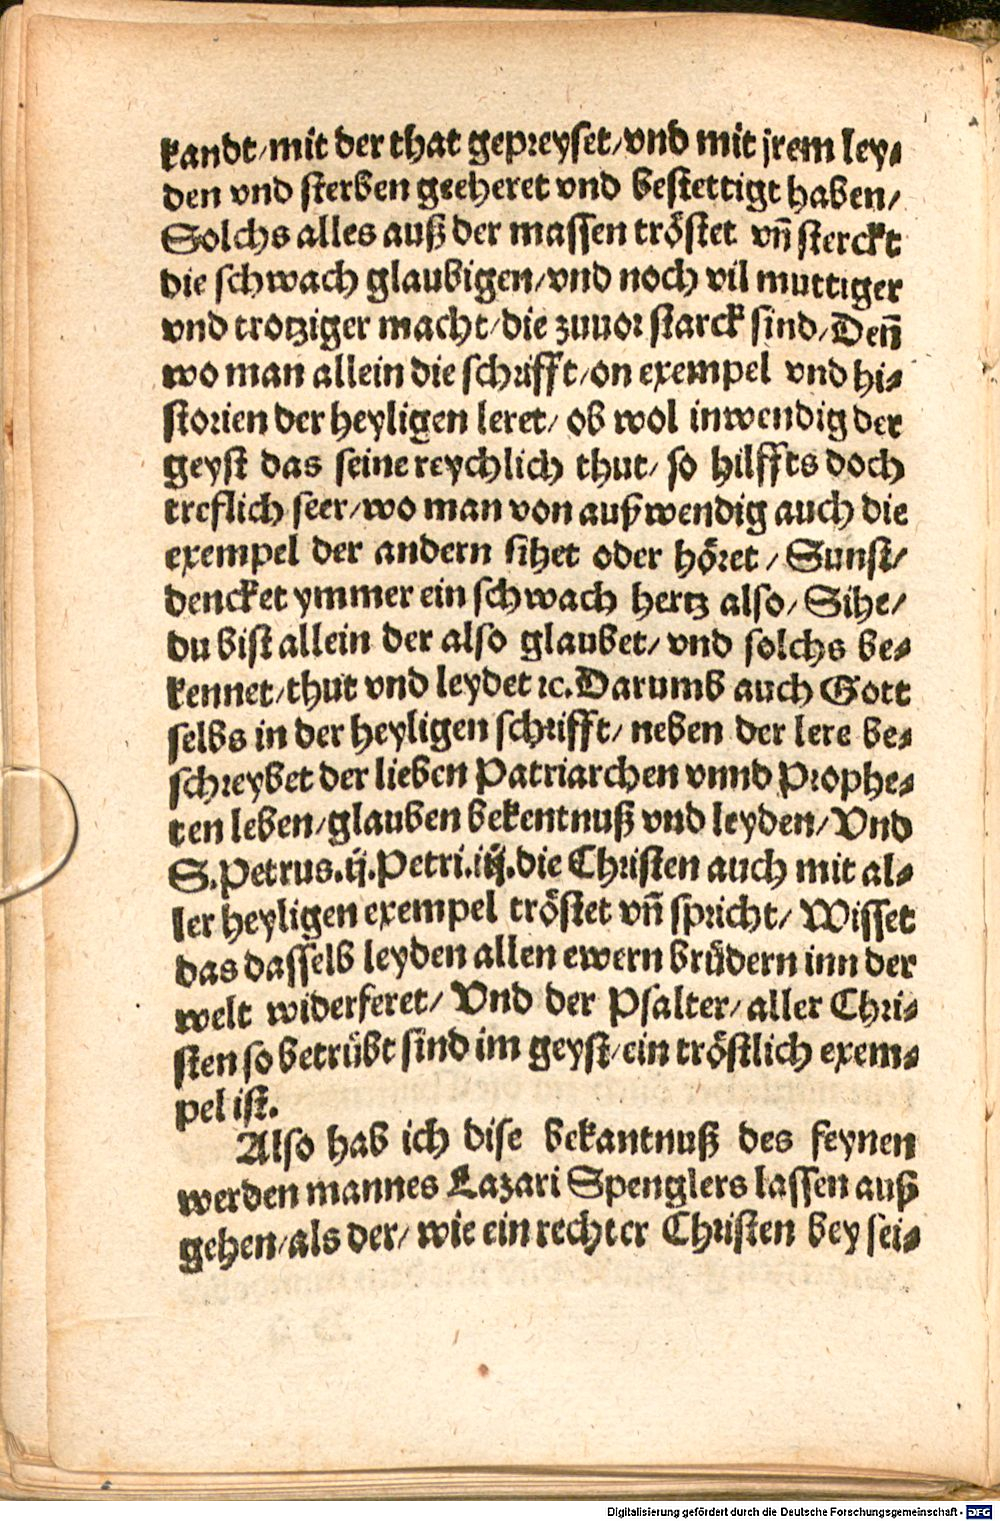 kandt/mit der that gepreyset/vnd mit jrem ley-
den vnd sterben geeheret vnd bestettigt haben/
Solchs alles auß der massen tröstet vn̄ sterckt
die schwach glaubigen/vnd noch vil muttiger
vnd trotziger macht/die zuuor starck sind/Den̄
wo man allein die schrifft/on exempel vnd hi-
storien der heyligen leret/ ob wol inwendig der
geyst das seine reychlich thut/ so hilffts doch
treflich seer/wo man von außwendig auch die
exempel der andern sihet oder höret/ Sunst/
dencket ymmer ein schwach hertz also/ Sihe/
du bist allein der also glaubet/ vnd solchs be-
kennet/thut vnd leydet ꝛc. Darumb auch Gott
selbs in der heyligen schrifft/ neben der lere be-
schreybet der lieben Patriarchen vnnd Prophe-
ten leben/glauben bekentnuß vnd leyden/Vnd
S.Petrus.ij.Petri.iij.die Christen auch mit al-
ler heyligen exempel tröstet vn̄ spricht/ Wisset
das dasselb leyden allen ewern brüdern inn der
welt widerferet/ Vnd der Psalter/aller Chri-
sten so betrübt sind im geyst/ein tröstlich exem-
pel ist.
Also hab ich dise bekantnuß des feynen
werden mannes Lazari Spenglers lassen auß
gehen/als der/ wie ein rechter Christen bey sei-
Digitalisierung gefördert durch die Deutsche Forschungsgemeinschaft - DFG